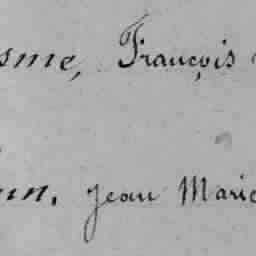 sme, François
un, Jean Marie